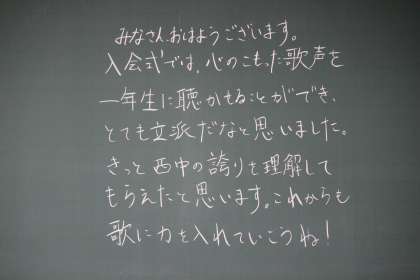 みなさん、おはようございます。
入会式では、心のこもった歌声を
一年生に聴かせることができ、
とても立派だなと思いました。
きっと西中の誇りを理解して
もらえたと思います。これからも
歌に力を入れていこうね！